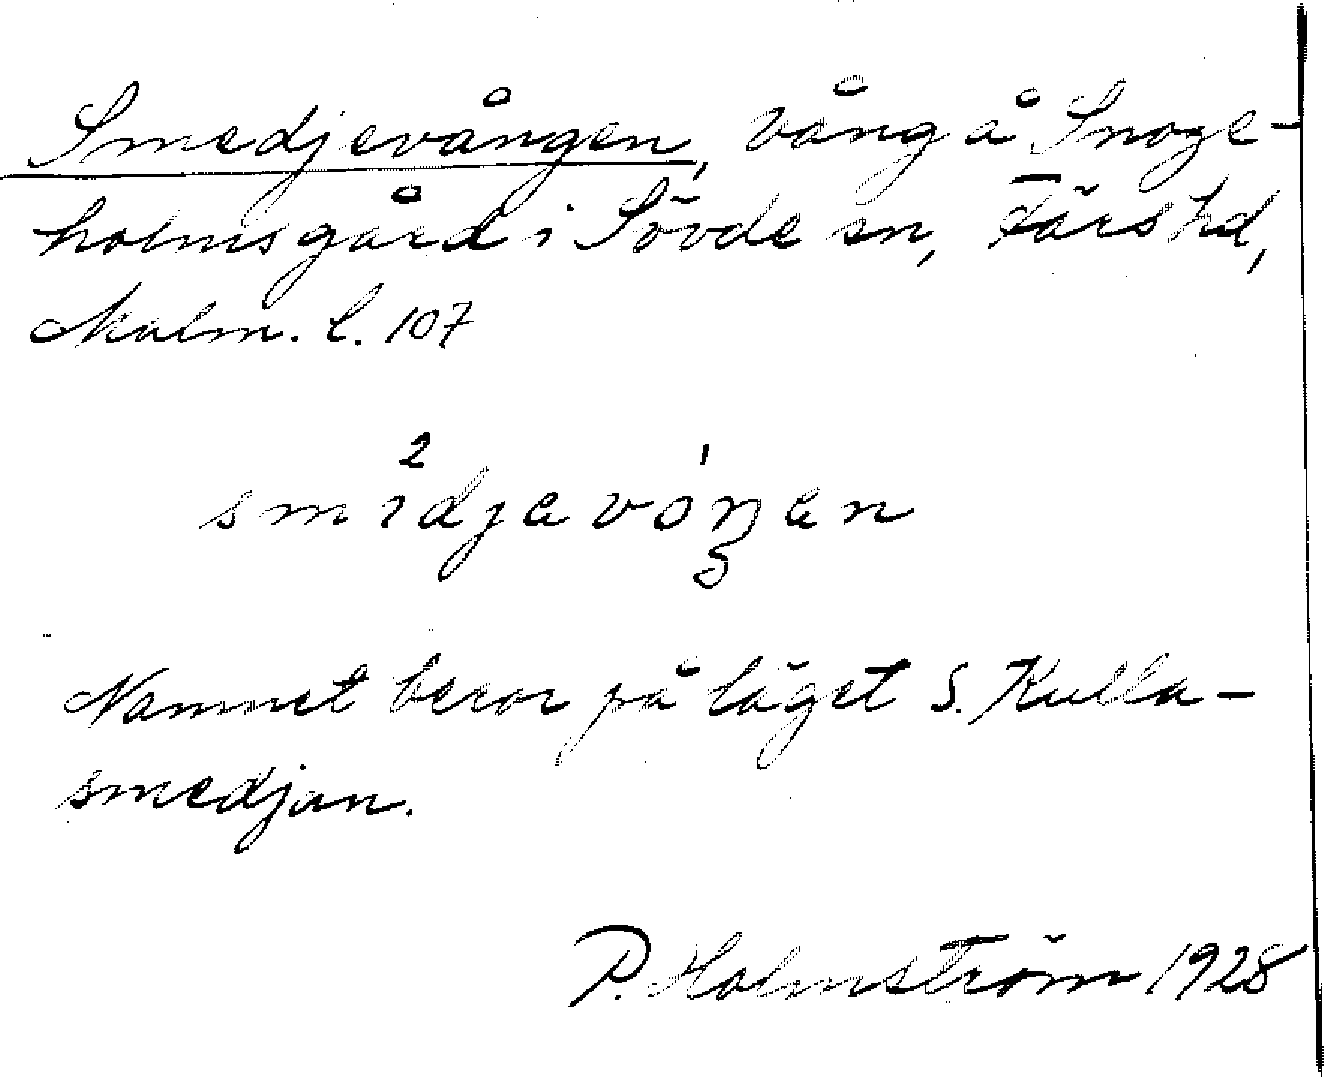 Smedjevången, vång å Snoge-
holmsgård i Sövde sn, Färs hd,
Malm. l. 107
2 1
smidjavoŋen
Namnet beror på läget S. Kulla-
smedjan.
P. Holmström 1928